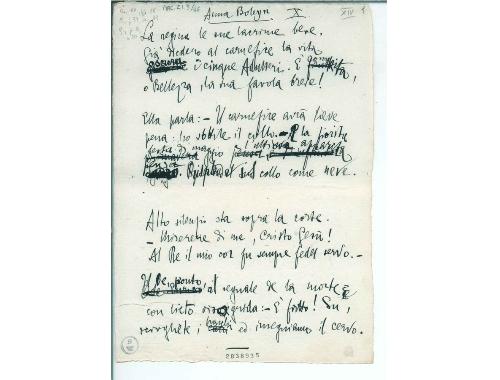 Anna Bolena X
XIV 1
La regina le sue lacrime beve.
Già diedero al carnefice la vita
i cinque Adulteri. È
o Bellezza, la tua favola breve!
Ella parla: – Il carnefice avrà lieve
pena: ho sottile il collo. – E la fiorita
festa di maggio
sul collo come neve.
Alto silenzio sta sopra la corte.
– Miserere di me, Cristo Gesù!
Al Re il mio cor fu sempre fedel servo. –
Il Re, pronto, al segnale de la morte
con lieto viso grida: – È fatto! Su,
sciogliete i ed inseguiamo il cervo.
2838935